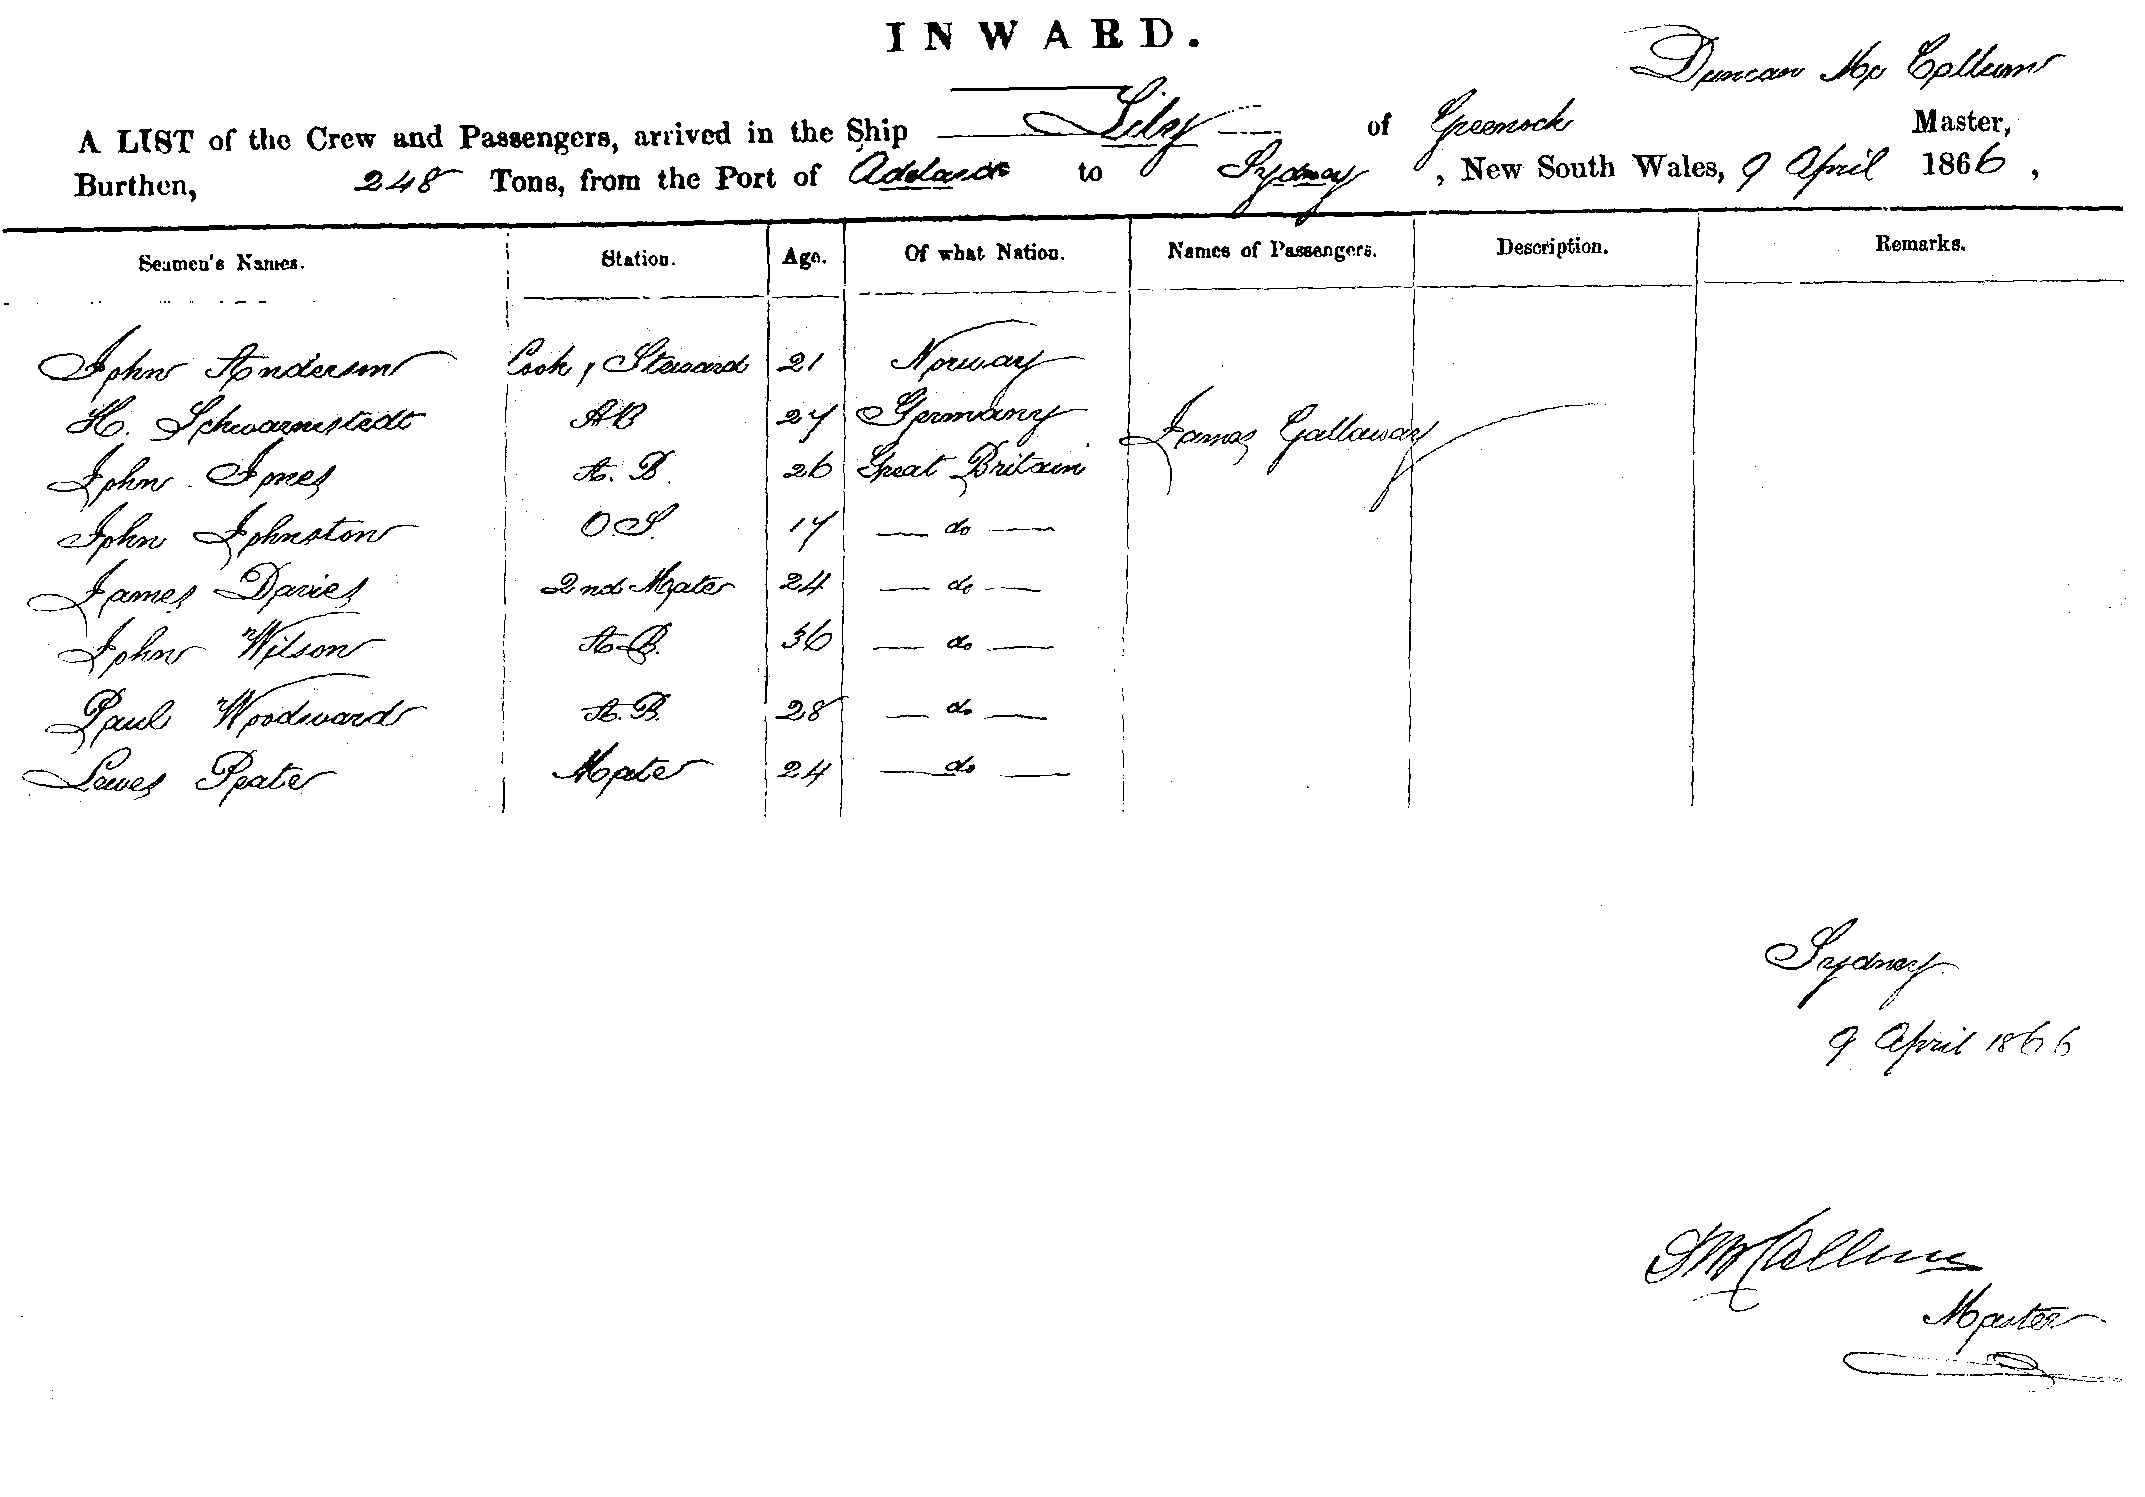 INWARD.
Duncan Mc Collum
A LIST of the Crew and Passengers, arrived in the Ship Lily of Greenock Master,
Burthen, 248 Tons, from the Port of Adelaide to Sydney, New South Wales, 9 April 1866,
Seamen's Names. Station. Age. Of what Nation. Names of Passengers. Description. Remarks.
John Anderson Cook, Steward 21 Norway
H. Schwarmstedt AB 27 Germany James Gallaway
John Jones A. B. 26 Great Britain
John Johnston O S. 17 — do —
James Davies 2nd Mate 24 — do —
John Wilson A.B. 36 — do —
Paul Woodward A.B. 28 — do —
Lewes Peate Mate 24 — do —
Sydney
9 April 1866
D McCollum
Master